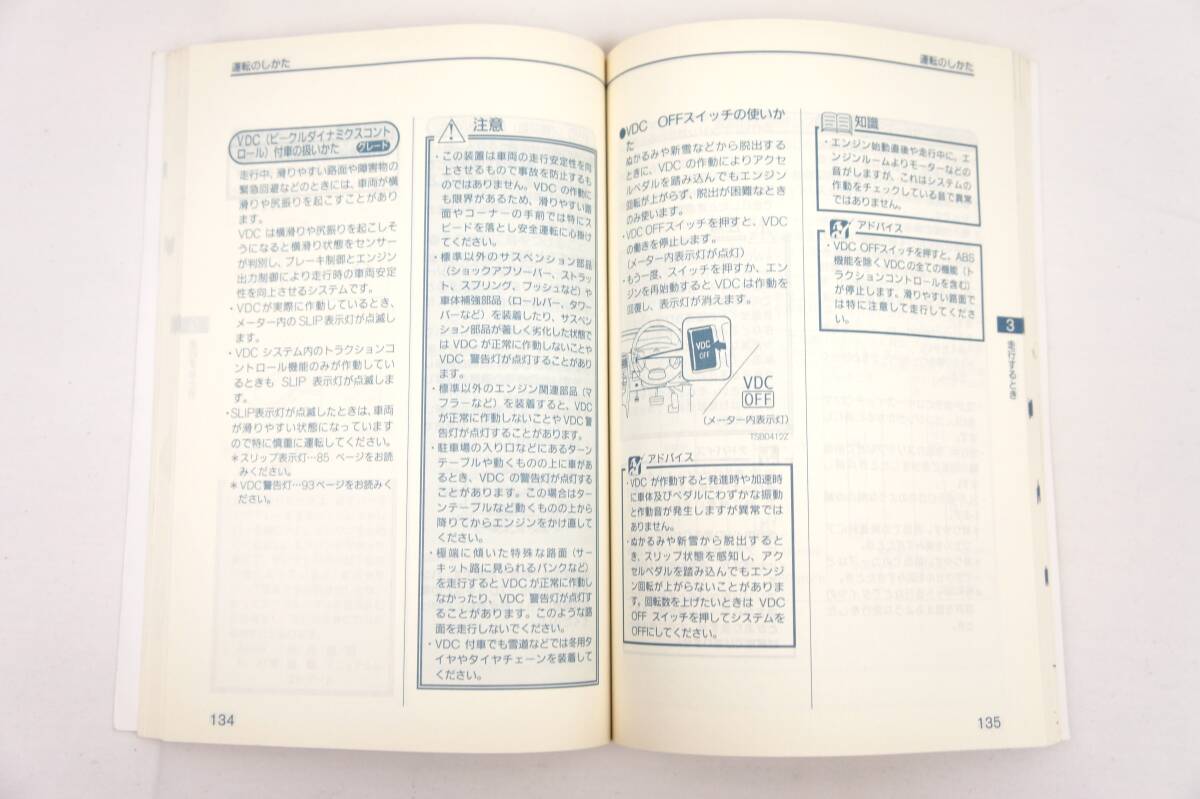 運転のしかた
VDC（ビークルダイナミクスコント
ロール）付車の扱いかた グレード
走行中、滑りやすい路面や障害物の
緊急回避などのときには、車両が横
滑りや尻振りを起こすことがあり
ます。
VDC は横滑りや尻振りを起こしそ
うになると横滑り状態をセンサー
が判別し、ブレーキ制御とエンジン
出力制御により走行時の車両安定
性を向上させるシステムです。
・VDCが実際に作動しているとき、
メーター内のSLIP表示灯が点滅し
ます。
・VDC システム内のトラクションコ
ントロール機能のみが作動してい
るときも SLIP 表示灯が点滅しま
す。
・SLIP表示灯が点滅したときは、車両
が滑りやすい状態になっています
ので特に慎重に運転してください。
＊スリップ表示灯…85 ページをお読
みください。
＊ VDC警告灯…93ページをお読みく
ださい。
134
注意
・この装置は車両の走行安定性を向
上させるもので事故を防止するも
のではありません。VDC の作動に
も限界があるため、滑りやすい路
面やコーナーの手前では特にス
ピードを落とし安全運転に心掛け
てください。
・標準以外のサスペンション部品
（ショックアブソーバー、ストラッ
ト、スプリング、ブッシュなど）や
車体補強部品（ロールバー、タワー
バーなど）を装着したり、サスペ
ンション部品が著しく劣化した状態で
は VDC が正常に作動しないことや
VDC 警告灯が点灯することがあり
ます。
・標準以外のエンジン関連部品（マ
フラーなど）を装着すると、VDC
が正常に作動しないことや VDC 警
告灯が点灯することがあります。
・駐車場の入り口などにあるターン
テーブルや動くものの上に車があ
るとき、VDC の警告灯が点灯する
ことがあります。この場合はター
ンテーブルなど動くものの上から
降りてからエンジンをかけ直して
ください。
・極端に傾いた特殊な路面（サー
キット路に見られるバンクなど）
を走行すると VDC が正常に作動し
なかったり、VDC 警告灯が点灯す
ることがあります。このような路
面を走行しないでください。
・VDC 付車でも雪道などでは冬用タ
イヤやタイヤチェーンを装着して
ください。
運転のしかた
●VDC OFFスイッチの使いか
た
ぬかるみや新雪などから脱出する
ときに、VDC の作動によりアクセ
ルペダルを踏み込んでもエンジン
回転が上がらず、脱出が困難なとき
のみ使います。
・VDC OFFスイッチを押すと、VDC
の働きを停止します。
（メーター内表示灯が点灯）
・もう一度、スイッチを押すか、エン
ジンを再始動すると VDC は作動を
回復し、表示灯が消えます。
VDC
OFF
VDC
OFF
（メーター内表示灯）
TSB0412Z
アドバイス
・VDC が作動すると発進時や加速時
に車体及びペダルにわずかな振動
と作動音が発生しますが異常では
ありません。
・ぬかるみや新雪から脱出すると
き、スリップ状態を感知し、アク
セルペダルを踏み込んでもエンジ
ン回転が上がらないことがありま
す。回転数を上げたいときは VDC
OFF スイッチを押してシステムを
OFFにしてください。
知識
・エンジン始動直後や走行中に、エ
ンジンルームよりモーターなどの
音がしますが、これはシステムの
作動をチェックしている音で異常
ではありません。
アドバイス
・VDC OFFスイッチを押すと、ABS
機能を除くVDCの全ての機能（ト
ラクションコントロールを含む）
が停止します。滑りやすい路面で
は特に注意して走行してくださ
い。
3
走行するとき
135